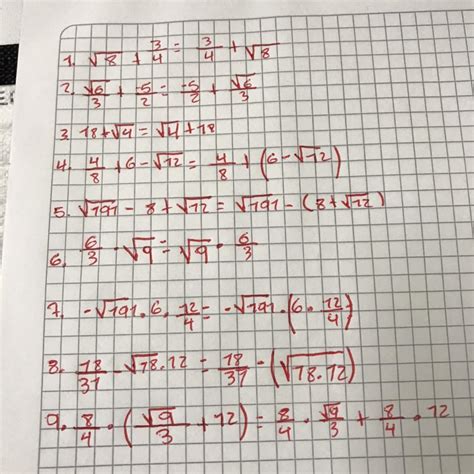 1. √8 + 3/4 = 3/4 + √8
2. √6/3 + -5/2 = -5/2 + √6/3
3. 18+√4 = √4 + 18
4. 4/8 + 6 - √12 = 4/8 + (6 - √12)
5. √191 - 8 + √12 = √191 - (8 + √12)
6. 6/3 · √9 = √9 · 6/3
7. -√191 · 6 · 12/4 = -√191 · (6 · 12/4)
8. 18/31 - √78 · 12 = 18/31 - (√78 · 12)
9. 8/4 · (√9/3 + 12) = 8/4 · √9/3 + 8/4 · 12